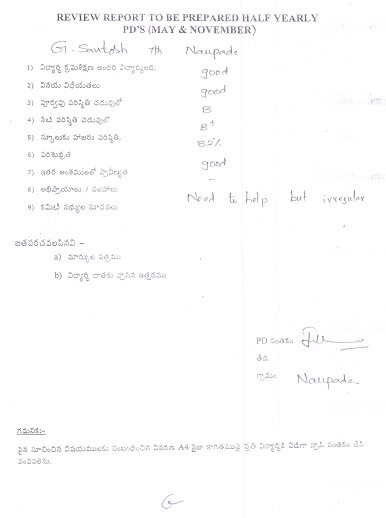 REVIEW REPORT TO BE PREPARED HALF YEARLY
PD'S (MAY & NOVEMBER)
G. Santosh 7th Naupada
1) విద్యార్థి క్రమశిక్షణ అందరి విద్యార్థులది. good
2) వినయ విధేయతలు good
3) పూర్వపు పరిస్థితి చదువులో B
4) నేటి పరిస్థితి చదువులో B+
5) స్కూలుకు హాజరు పరిస్థితి. 82%
6) పరిశుభ్రత good
7) ఇతర అంశములలో ప్రావీణ్యత -
8) అభిప్రాయాలు / సలహాలు Need to help but irregular
9) కమిటీ సభ్యుల సూచనలు
జతపరచవలసినవి –
a) మార్కుల పత్రము
b) విద్యార్థి దాతకు వ్రాసిన ఉత్తరము
PD సంతకం
తేది.
గ్రామం Naupada.
గమనిక:-
పైన సూచించిన విషయములకు సంబంధించిన వివరణ A4 సైజు కాగితముపై ప్రతి విద్యార్థికి విడిగా వ్రాసి సంతకం చేసి
పంపవలెను.